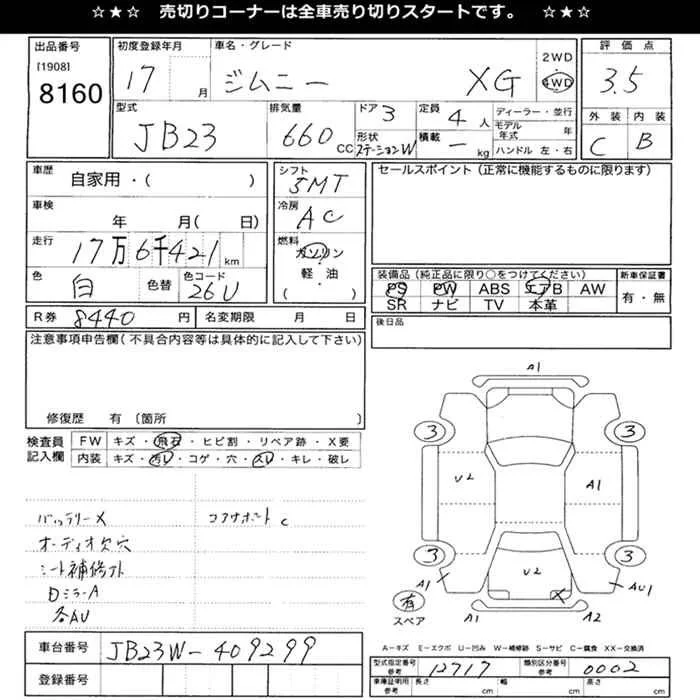 ☆★☆ 売切りコーナーは全車売り切りスタートです。 ☆★☆
出品番号
[1908]
8160
初度登録年月
17 月
車名・グレード
ジムニー XG
2WD
4WD
評価点
3.5
外装 内装
C B
型式
JB23
排気量
660 CC
ドア 3
形状
ステーションW
定員 4 人
積載 ー kg
ディーラー・並行
モデル年式 年
ハンドル 左・右
車歴
自家用・( )
車検
年 月( 日)
走行
17万6千421km
色
白
色替
色コード
26U
シフト
5MT
冷房
AC
燃料
ガソリン
・
軽・油
( )
セールスポイント(正常に機能するものに限ります)
装備品(純正品に限り○をつけてください)
PS PW ABS エアB AW
SR ナビ TV 本革
新車保証書
有・無
R券 8440 円
名変期限 月 日
後日品
注意事項申告欄(不具合内容等は具体的に記入して下さい)
修復歴 有(箇所 )
検査員
記入欄
FW キズ・飛石・ヒビ割・リペア跡・X要
内装 キズ・汚レ・コゲ・穴・スレ・キレ・破レ
バッテリーX
コアサポート C
オーディオ欠穴
シート補修アト
DミラーA
各AU
A1
3
3
U2
A1
3
3
A1
U2
X
AU1
A1
A2
有
スペア
A−キズ E−エクボ U−凹み W−補修跡 S−サビ C−腐食 XX−交換済
車台番号
JB23W-409299
登録番号
型式指定番号
参考
12717
類別区分番号
参考
0002
車庫証明用
参考
長さ cm
幅 cm
高さ cm